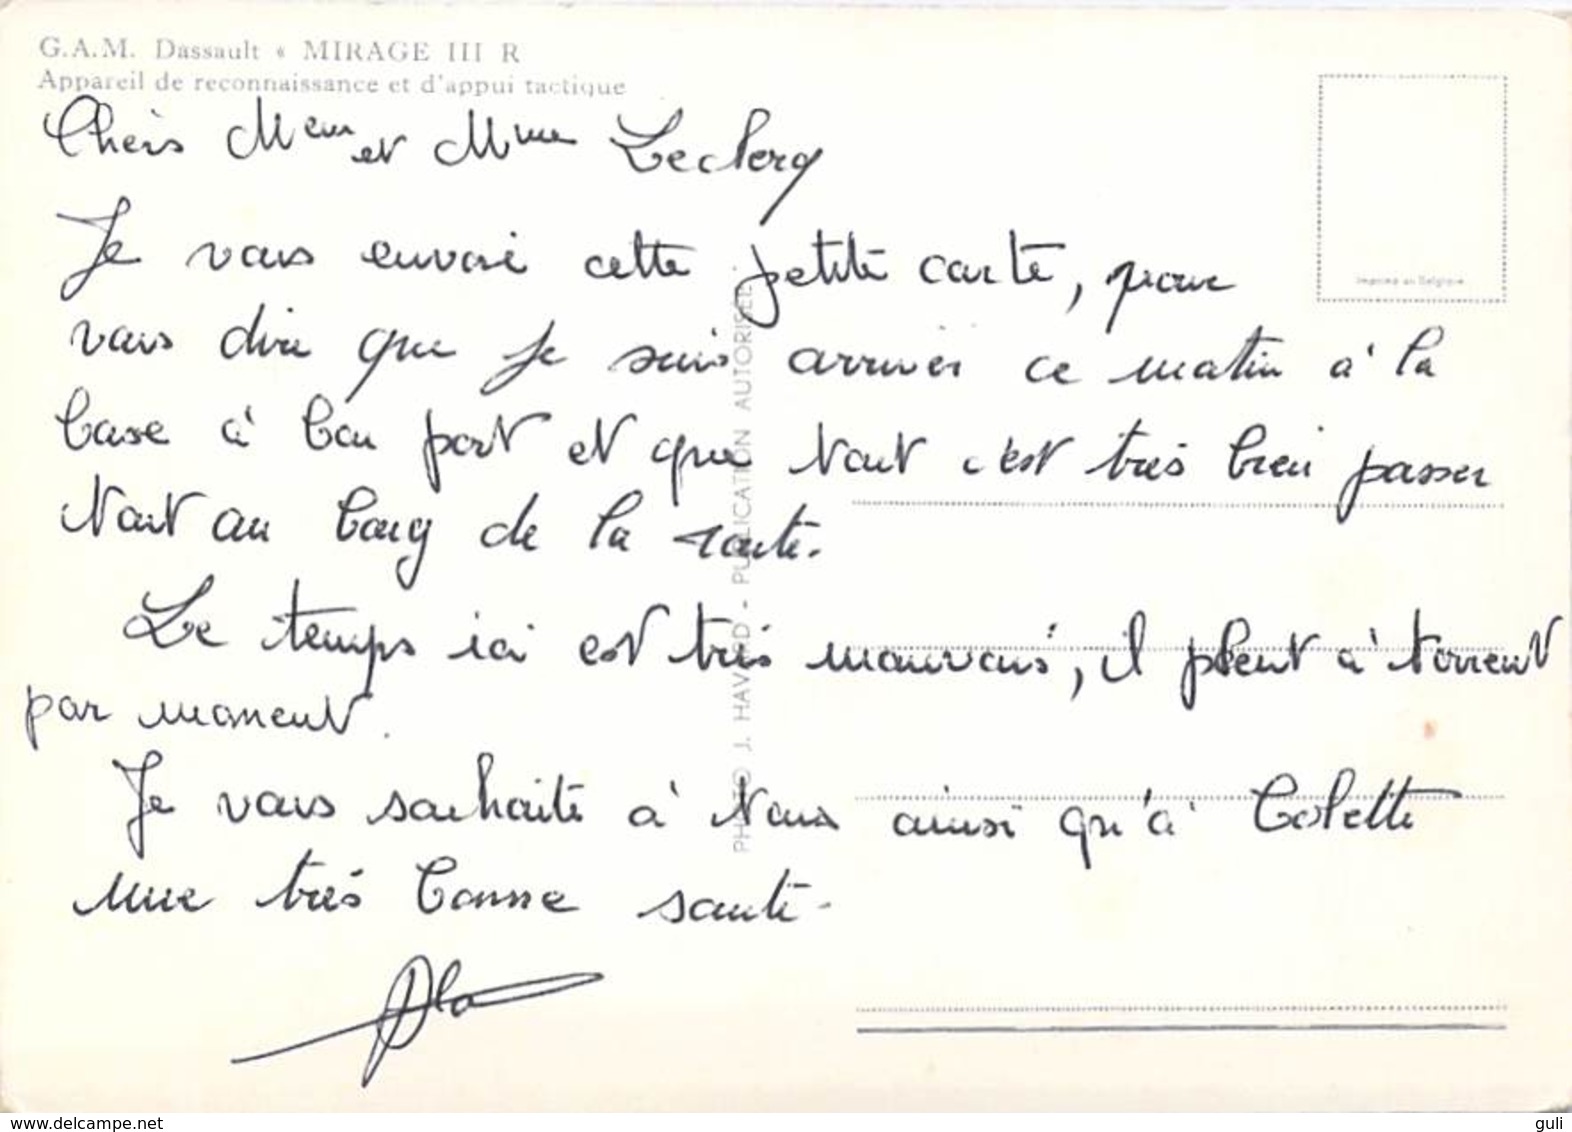 G.A.M. Dassault « MIRAGE III R
Appareil de reconnaissance et d'appui tactique
Chers Meur et Mme Leclerq
Je vous envoie cette petite carte, pour
vous dire que je suis arriver ce matin à la
base à bon port et que tout c'est très bien passer
tout au long de la route.
Le temps ici est très mauvais, il pleut à torrent
par moment.
Je vous souhaite à tous ainsi qu'à Colette
une très bonne santé.
Imprimé en Belgique
PHOTO J. HAVARD - PUBLICATION AUTORISEE
www.delcampe.net
guli